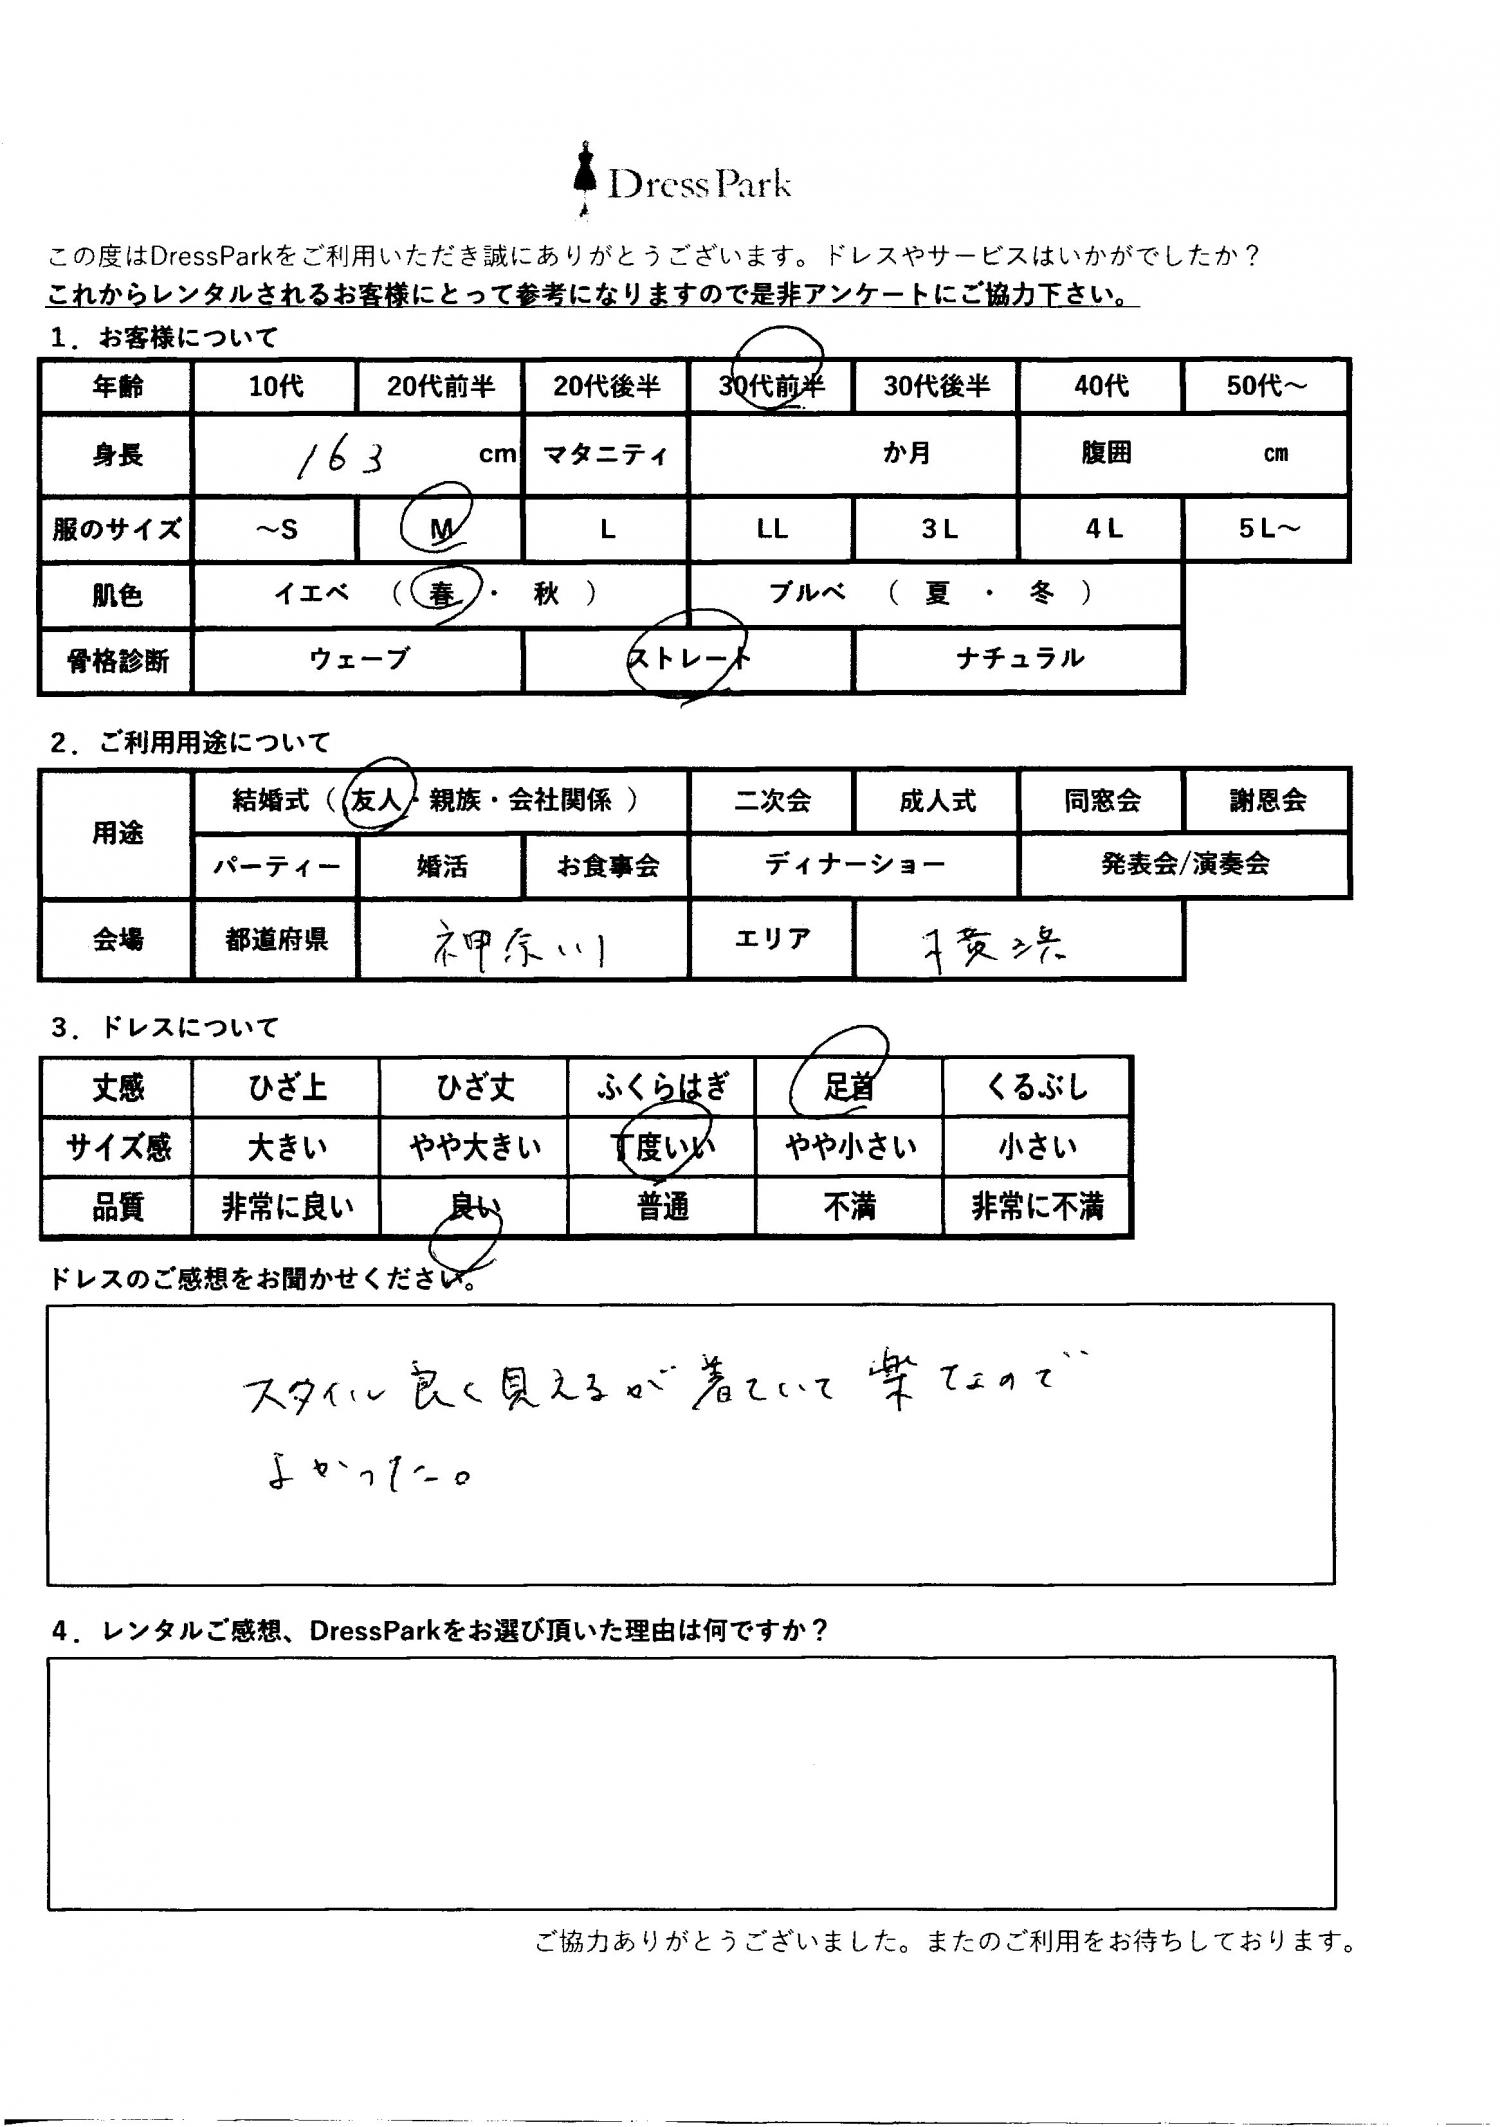 DressPark
この度はDressParkをご利用いただき誠にありがとうございます。ドレスやサービスはいかがでしたか？
これからレンタルされるお客様にとって参考になりますので是非アンケートにご協力下さい。
1．お客様について
年齢 10代 20代前半 20代後半 30代前半 30代後半 40代 50代～
身長 163 cm マタニティ か月 腹囲 cm
服のサイズ ～S M L LL 3L 4L 5L～
肌色 イエベ （ 春 ・ 秋 ） ブルベ （ 夏 ・ 冬 ）
骨格診断 ウェーブ ストレート ナチュラル
2．ご利用用途について
用途 結婚式（ 友人・親族・会社関係 ） 二次会 成人式 同窓会 謝恩会
パーティー 婚活 お食事会 ディナーショー 発表会/演奏会
会場 都道府県 神奈川 エリア 横浜
3．ドレスについて
丈感 ひざ上 ひざ丈 ふくらはぎ 足首 くるぶし
サイズ感 大きい やや大きい 丁度いい やや小さい 小さい
品質 非常に良い 良い 普通 不満 非常に不満
ドレスのご感想をお聞かせください。
スタイル良く見えるが着ていて楽なので
よかった。
4．レンタルご感想、DressParkをお選び頂いた理由は何ですか？
ご協力ありがとうございました。またのご利用をお待ちしております。